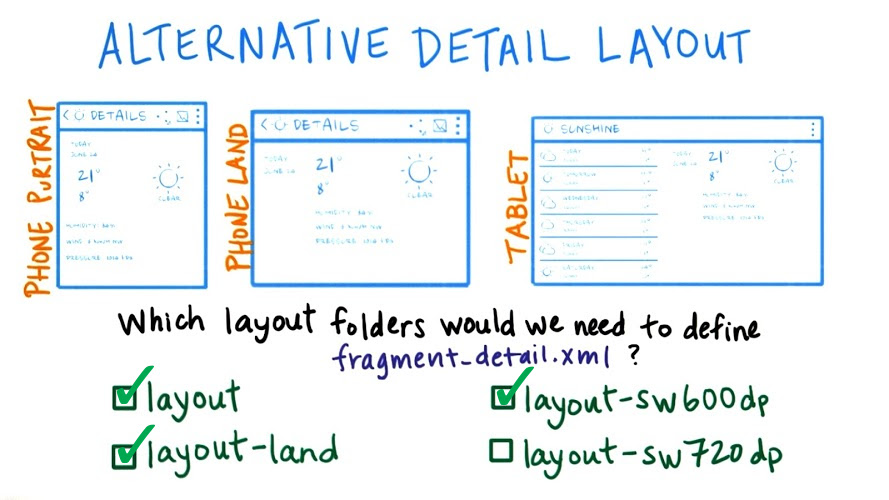 ALTERNATIVE DETAIL LAYOUT
PHONE PORTRAIT
< DETAILS
TODAY
21°
8°
CLEAR
HUMIDITY
WIND
PRESSURE
PHONE LAND
< DETAILS
TODAY
21°
8°
CLEAR
HUMIDITY
WIND
PRESSURE
TABLET
SUNSHINE
TODAY
TOMORROW
WEDNESDAY
THURSDAY
FRIDAY
SATURDAY
TODAY
21°
8°
CLEAR
HUMIDITY
WIND
PRESSURE
Which layout folders would we need to define
fragment_detail.xml ?
layout
layout-land
layout-sw600dp
layout-sw720dp